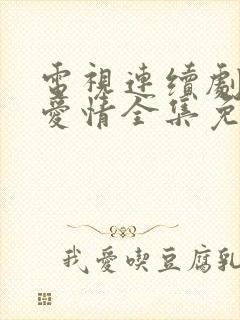 電視連續劇
愛情全集免
我愛喫豆腐乳